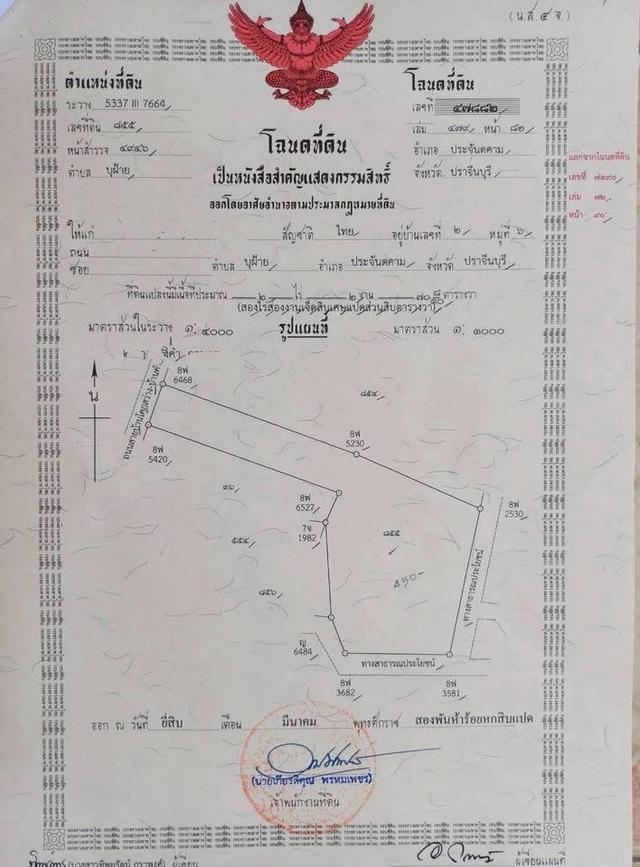 (น.ส.๔ จ.)
ตำแหน่งที่ดิน
ระวาง 5337 III 7664
เลขที่ดิน ๘๕๕
หน้าสำรวจ ๔๙๔๖
ตำบล บุฝ้าย
โฉนดที่ดิน
เลขที่ ๔๗๘๘๒
เล่ม ๔๗๙ หน้า ๘๒
อำเภอ ประจันตคาม
จังหวัด ปราจีนบุรี
แยกจากโฉนดที่ดิน
เลขที่ ๗๒๙๐
เล่ม ๗๒
หน้า ๙๐
โฉนดที่ดิน
เป็นหนังสือสำคัญแสดงกรรมสิทธิ์
ออกโดยอาศัยอำนาจตามประมวลกฎหมายที่ดิน
ให้แก่ สัญชาติ ไทย อยู่บ้านเลขที่ ๒ หมู่ที่ ๖
ถนน
ซอย ตำบล บุฝ้าย อำเภอ ประจันตคาม จังหวัด ปราจีนบุรี
ที่ดินแปลงนี้มีเนื้อที่ประมาณ ๒ ไร่ ๒ งาน ตารางวา
(สองไร่สองงานเจ็ดสิบเศษแปดส่วนสิบตารางวา)
มาตราส่วนในระวาง ๑:๔๐๐๐ รูปแผนที่ มาตราส่วน ๑:๑๐๐๐
น
8ฟ
6468
๘๕๔
8ฟ
5230
8ฟ
5420
8ฟ
6527
8ฟ
2530
7จ
1982
๕๕๔
๘๕๕
450-
๘๕๖
ทางสาธารณประโยชน์
ญ
6484
ทางสาธารณประโยชน์
8ฟ
3682
8ฟ
3581
ออก ณ วันที่ ยี่สิบ เดือน มีนาคม พุทธศักราช สองพันห้าร้อยหกสิบแปด
(นายเกียรติคุณ พรหมเพชร)
เจ้าพนักงานที่ดิน